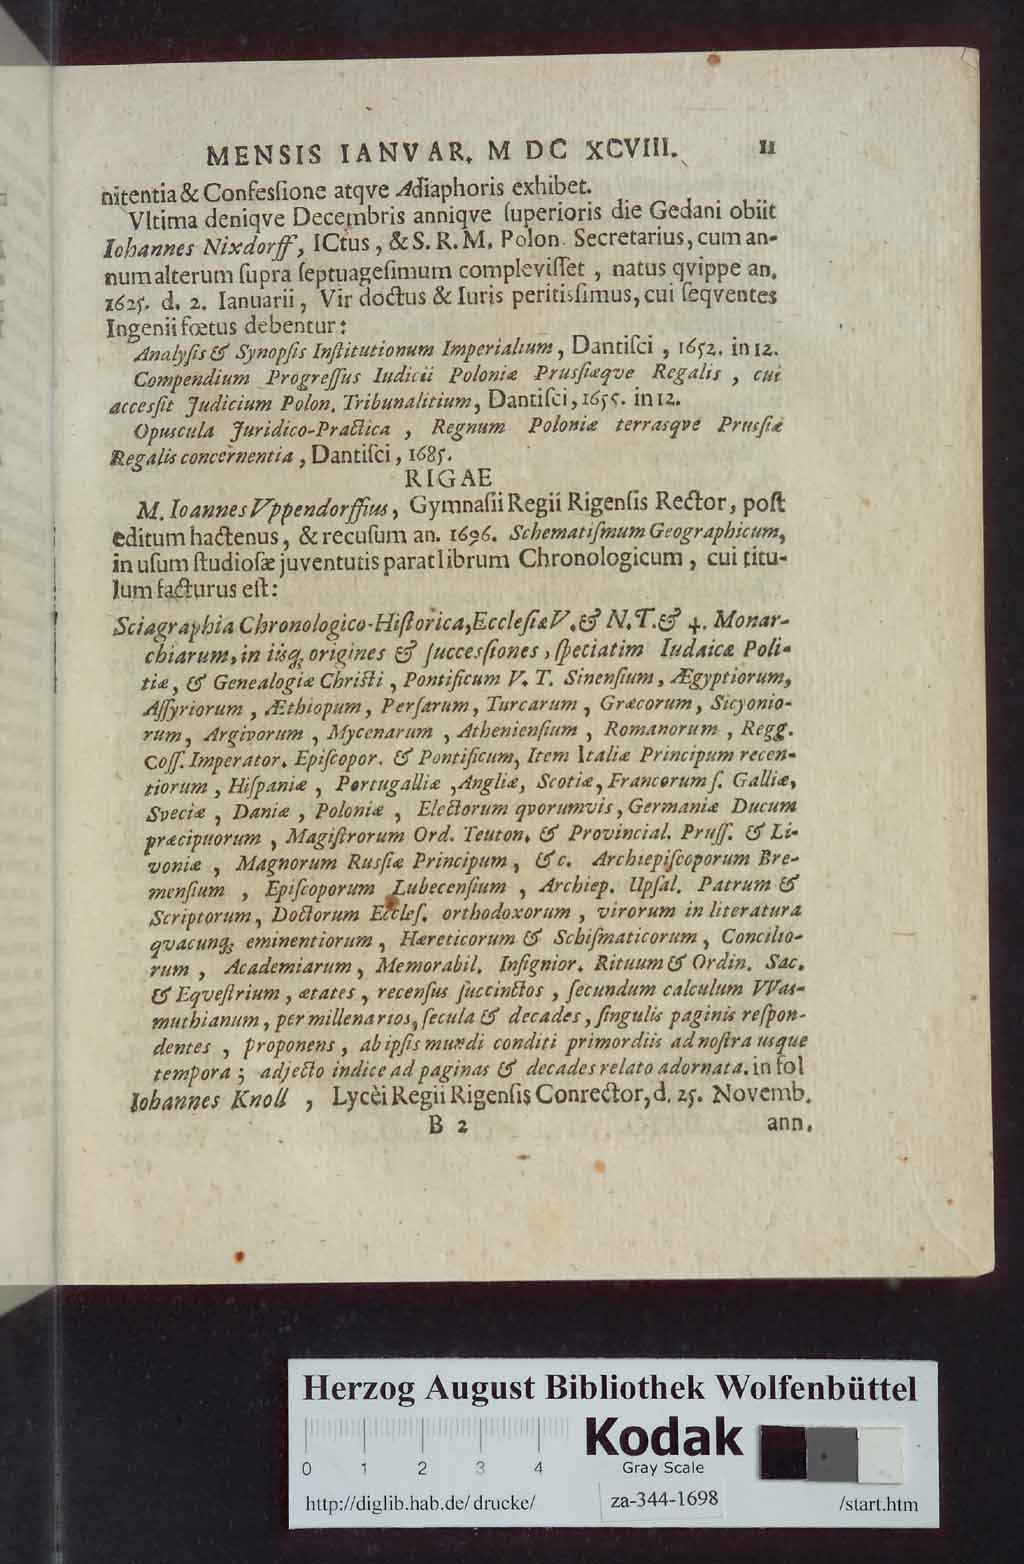 MENSIS IANVAR. M DC XCVIII. 11
nitentia & Confesſione atqve Adiaphoris exhibet.
Vltima deniqve Decembris anniqve ſuperioris die Gedani obiit
Iohannes Nixdorff, ICtus, & S. R. M. Polon. Secretarius, cum an-
num alterum ſupra ſeptuageſimum compleviſſet, natus qvippe an.
1625. d. 2. Ianuarii, Vir doctus & Iuris peritisſimus, cui ſeqventes
Ingenii fœtus debentur:
Analyſis & Synopſis Inſtitutionum Imperialium, Dantiſci, 1652. in 12.
Compendium Progreſſus Iudicii Poloniæ Prusſiæqve Regalis, cui
accesſit Judicium Polon. Tribunalitium, Dantiſci, 1655. in 12.
Opuscula Juridico-Practica, Regnum Poloniæ terrasqve Prusſiæ
Regalis concernentia, Dantiſci, 1685.
RIGAE
M. Ioannes Vppendorffius, Gymnaſii Regii Rigenſis Rector, poſt
editum hactenus, & recuſum an. 1696. Schematiſmum Geographicum,
in uſum ſtudioſæ juventutis parat librum Chronologicum, cui titu-
lum facturus eſt:
Sciagraphia Chronologico-Hiſtorica, Eccleſiæ V. & N. T. & 4. Monar-
chiarum, in iisq; origines & ſuccesſiones, ſpeciatim Iudaicæ Poli-
tiæ, & Genealogiæ Chriſti, Pontificum V. T. Sinenſium, Ægyptiorum,
Aſſyriorum, Æthiopum, Perſarum, Turcarum, Græcorum, Sicyonio-
rum, Argivorum, Mycenarum, Athenienſium, Romanorum, Regg.
Coſſ. Imperator. Epiſcopor. & Pontificum, Item Italiæ Principum recen-
tiorum, Hiſpaniæ, Portugalliæ, Angliæ, Scotiæ, Francorum ſ. Galliæ,
Sveciæ, Daniæ, Poloniæ, Electorum qvorumvis, Germaniæ Ducum
præcipuorum, Magiſtrorum Ord. Teuton. & Provincial. Pruſſ. & Li-
voniæ, Magnorum Rusſiæ Principum, &c. Archiepiſcoporum Bre-
menſium, Epiſcoporum Lubecenſium, Archiep. Upſal. Patrum &
Scriptorum, Doctorum Eccleſ. orthodoxorum, virorum in literatura
qvacunq; eminentiorum, Hæreticorum & Schiſmaticorum, Concilio-
rum, Academiarum, Memorabil. Inſignior. Rituum & Ordin. Sac.
& Eqveſtrium, ætates, recenſus ſuccinctos, ſecundum calculum VVas-
muthianum, per millenarios, ſecula & decades, ſingulis paginis reſpon-
dentes, proponens, ab ipſis mundi conditi primordiis ad noſtra usque
tempora; adjecto indice ad paginas & decades relato adornata. in fol
Iohannes Knoll, Lycèi Regii Rigenſis Conrector, d. 25. Novemb.
B 2 ann.
Herzog August Bibliothek Wolfenbüttel
Kodak
Gray Scale
0 1 2 3 4
http://diglib.hab.de/drucke/ za-344-1698 /start.htm